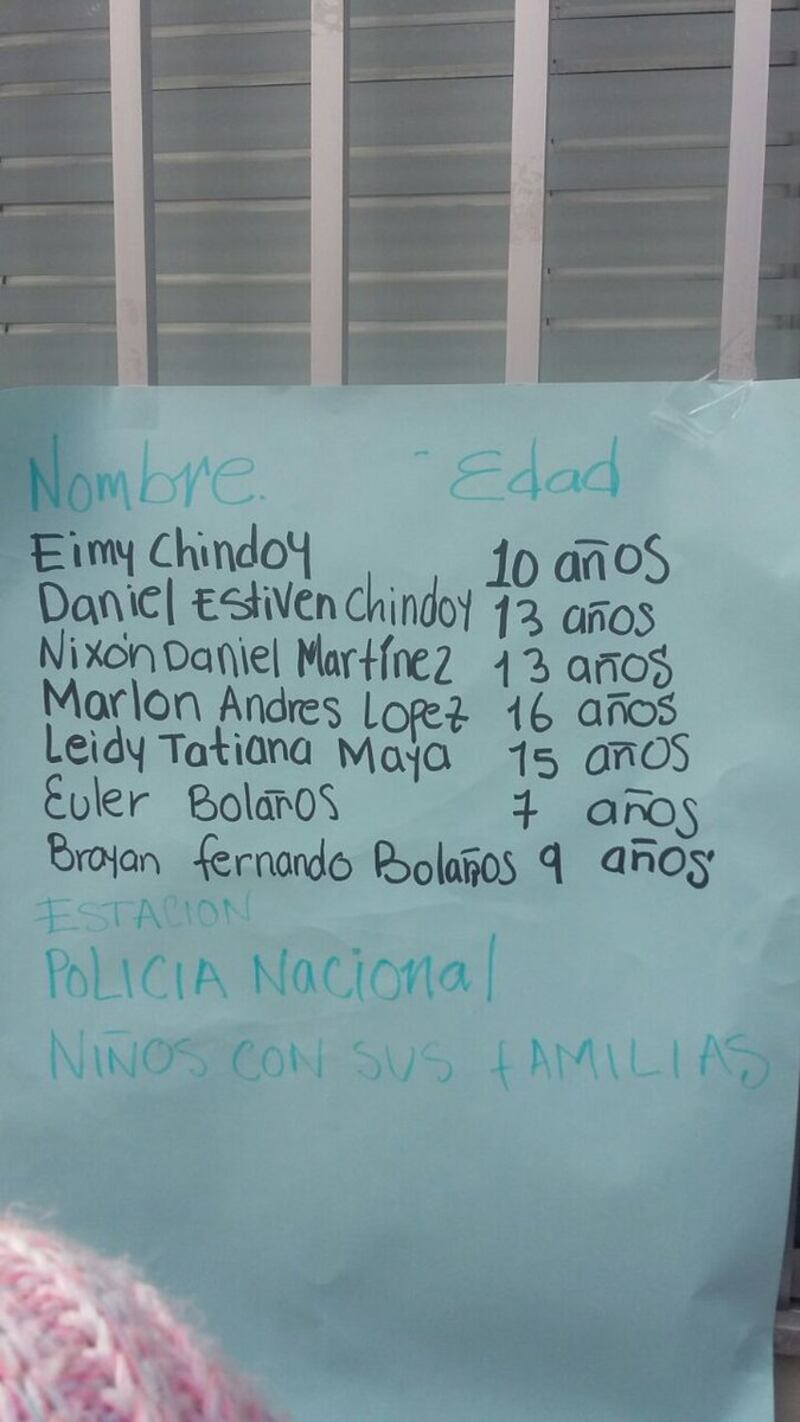 Nombre. - Edad
Eimy Chindoy 10 años
Daniel Estiven Chindoy 13 años
Nixón Daniel Martínez 13 años
Marlon Andres Lopez 16 años
Leidy Tatiana Maya 15 años
Euler Bolaños 7 años
Brayan fernando Bolaños 9 años
ESTACION
POLICIA Nacional
NIÑOS CON SUS fAMILIAS